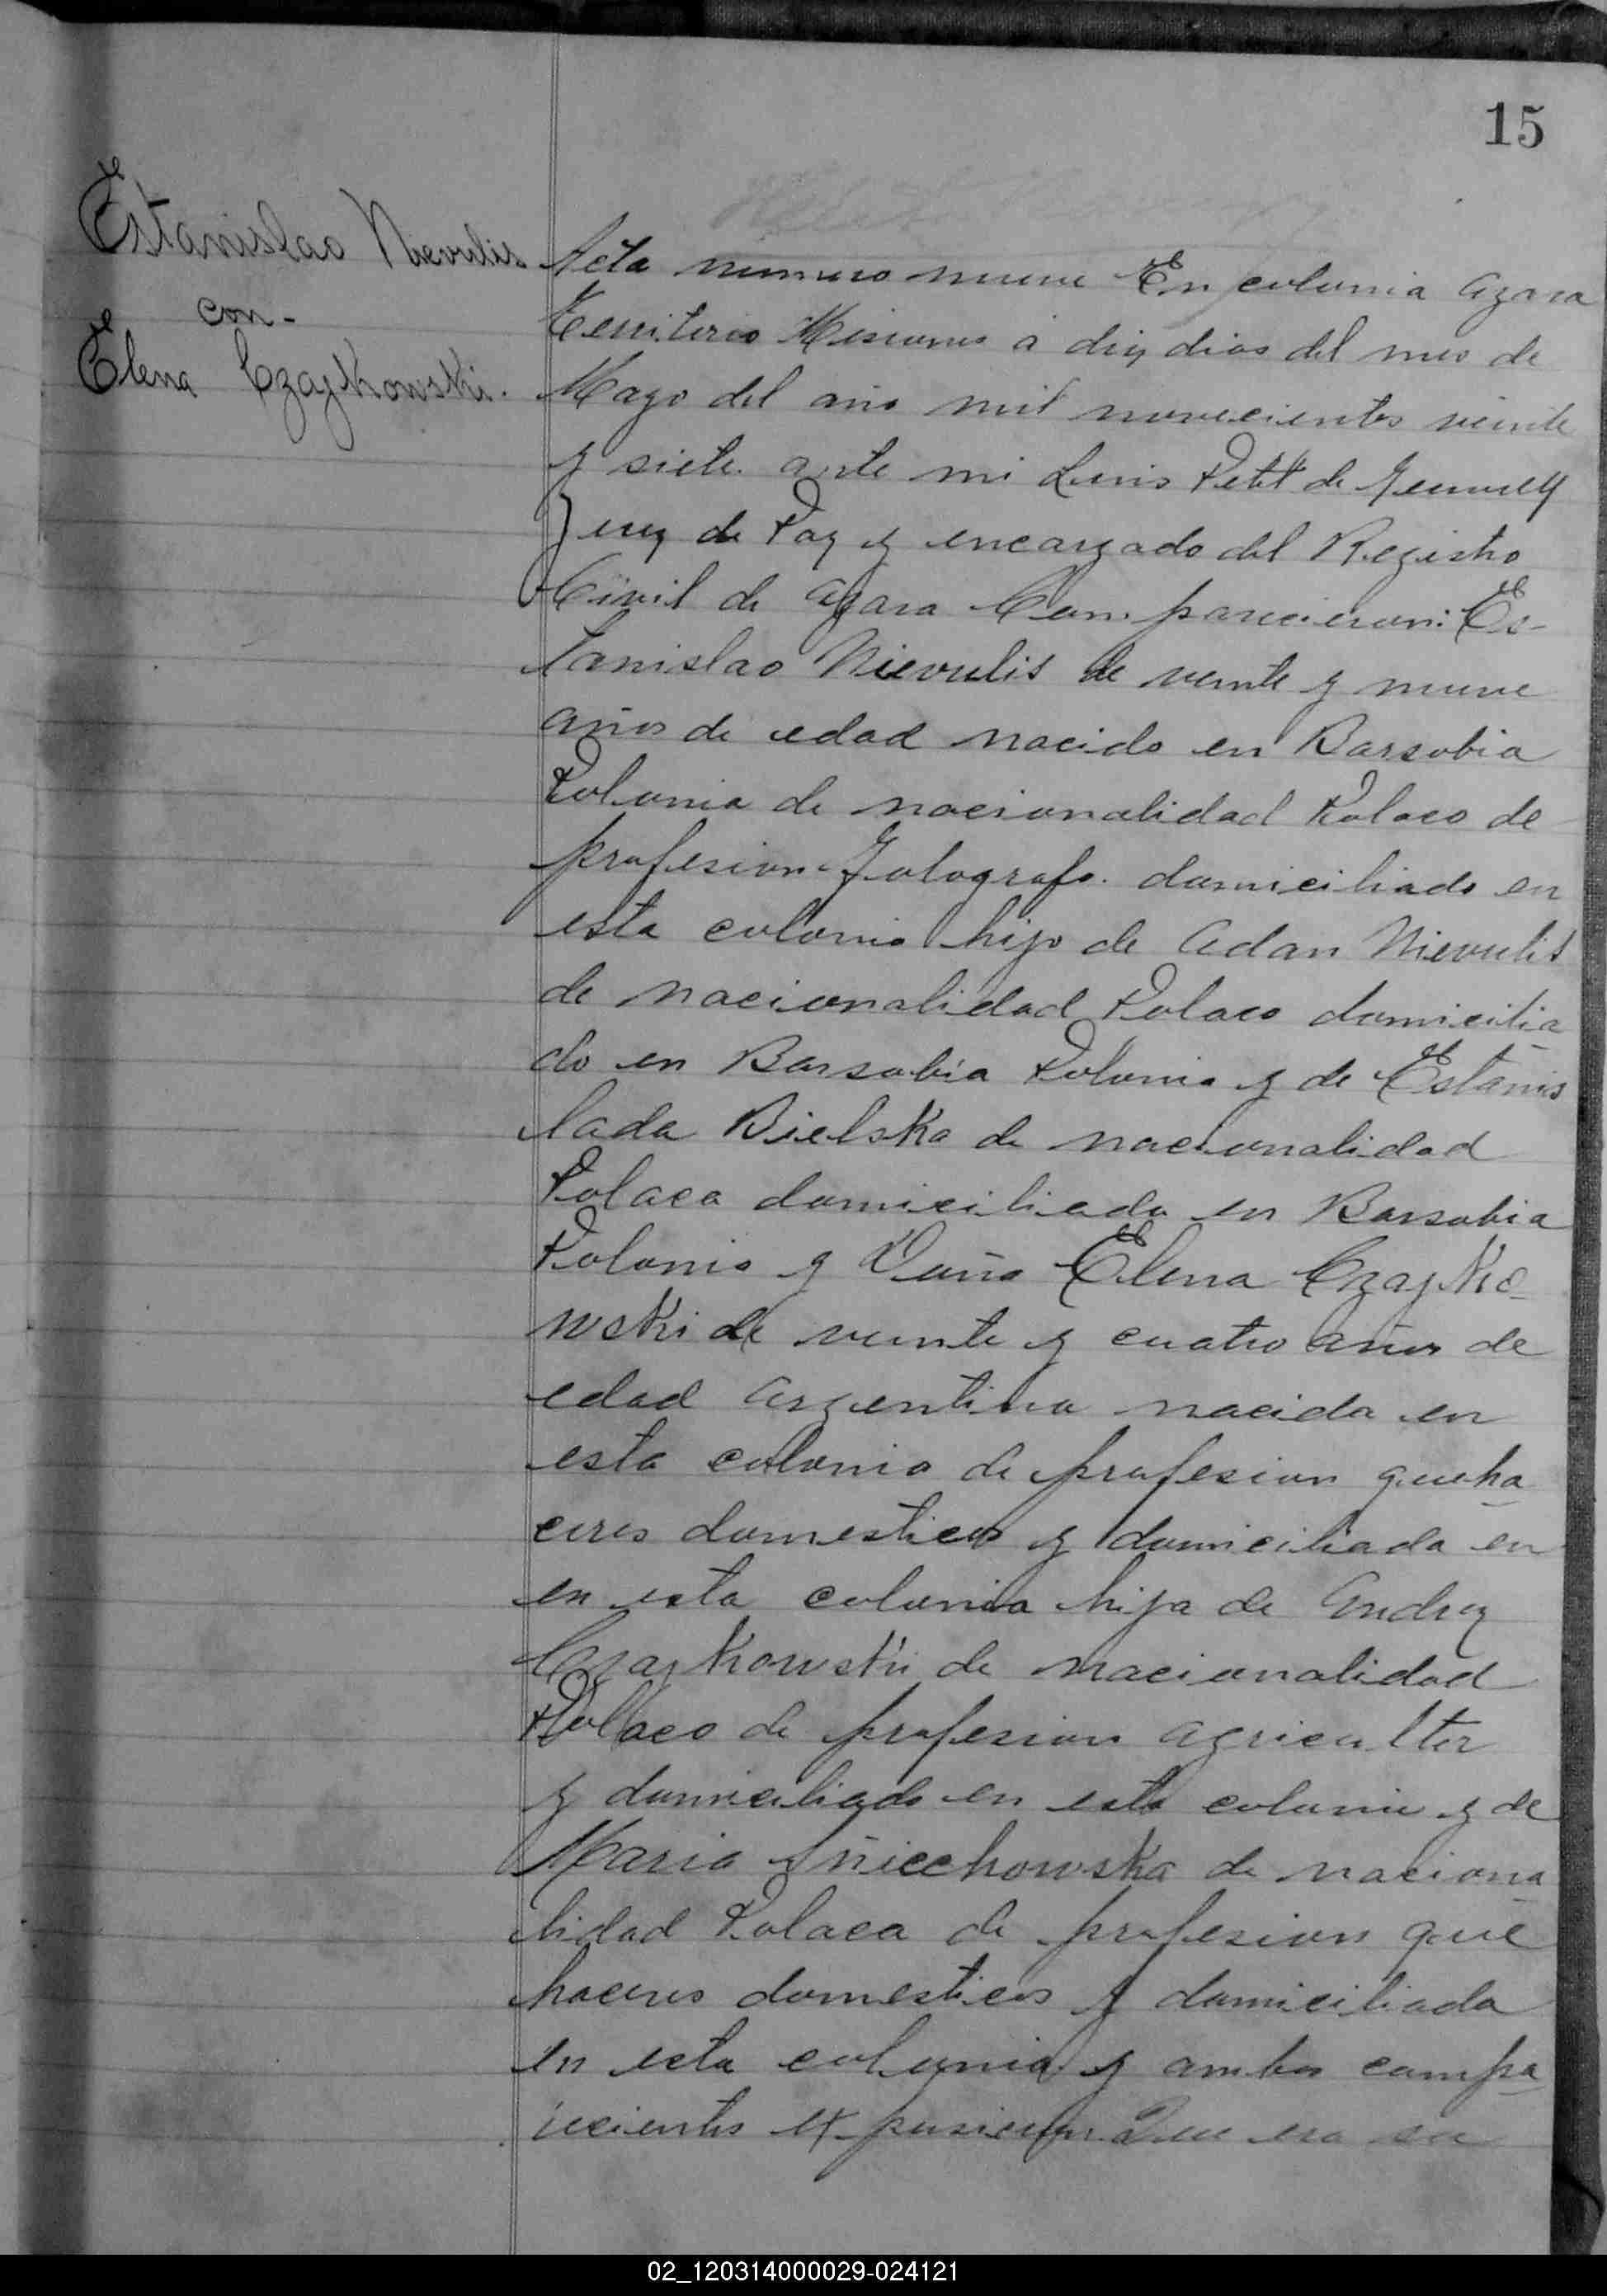 15
Estanislao Nievulis
con-
Elena Czajkowski.
Acta numero nueve En colonia Azara
Territorio Misiones á diez dias del mes de
Mayo del año mil novecientos veinte
y siete. ante mi Luis Petit de
Juez de Paz y encargado del Registro
Civil de Azara Comparecieron: Es-
tanislao Nievulis de veinte y nueve
años de edad nacido en Barsobia
Polonia de nacionalidad Polaco de
profesion Fotografo. domiciliado en
esta colonia hijo de Adan Nievulis
de nacionalidad Polaco domicilia
do en Barsobia Polonia y de Estanis
lada Bielska de nacionalidad
Polaca domiciliada en Barsobia
Polonia y Doña Elena Czajko-
wski de veinte y cuatro años de
edad Argentina nacida en
esta colonia de profesion queha
ceres domesticos y domiciliada en
en esta colonia hija de Andrez
Czajkowski de nacionalidad
Polaco de profesion agricultor
y domiciliado en esta colonia y de
Maria de naciona
lidad Polaca de profesion que
haceres domesticos y domiciliada
en esta colonia y ambos compa
recientes expusieron Que era su
02_120314000029-024121